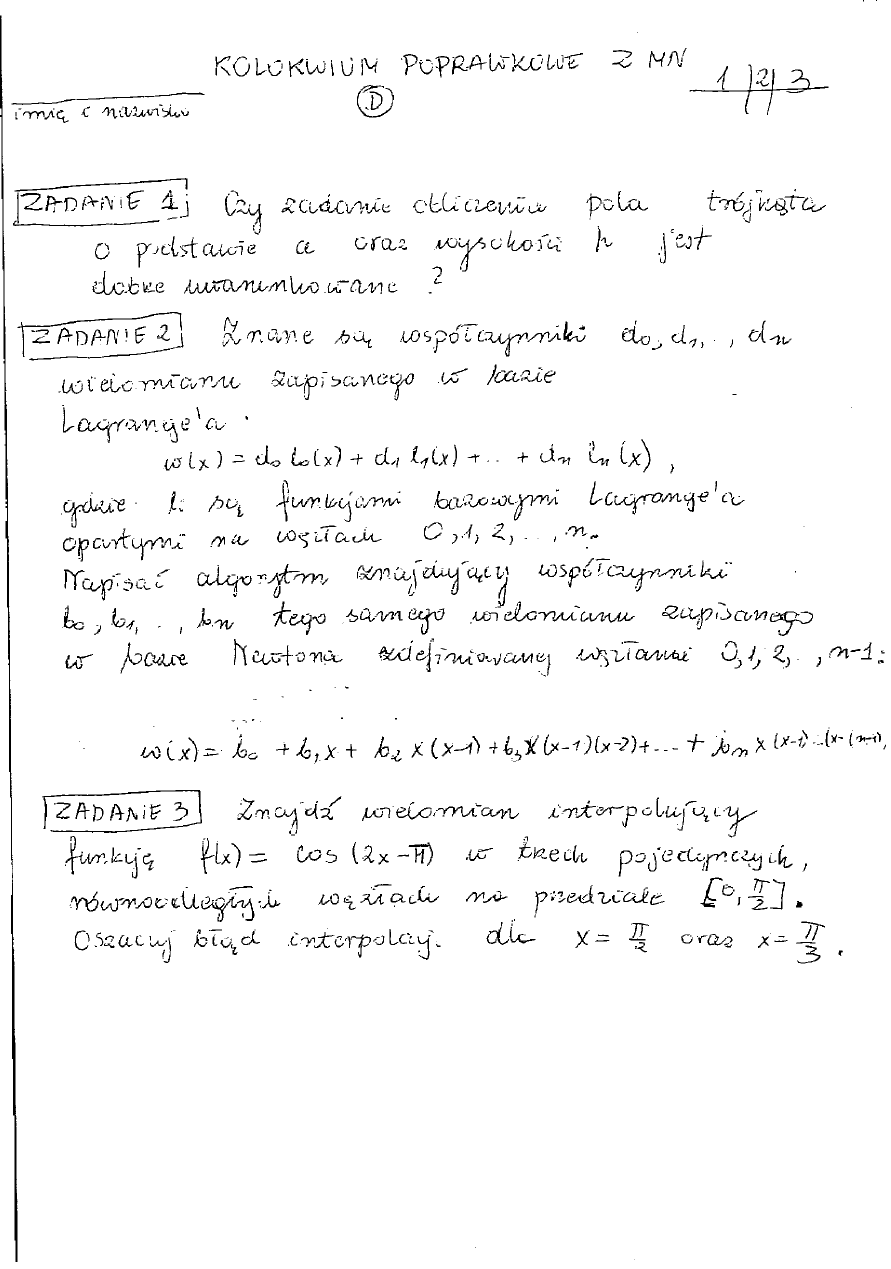 KOLOKWIUM POPRAWKOWE Z MN
1 | 2 | 3
imię i nazwisko
D
ZADANIE 1 Czy zadanie obliczenia pola trójkąta
o podstawie a oraz wysokości h jest
dobrze uwarunkowane ?
ZADANIE 2 Znane są współczynniki d₀, d₁, .., dₙ
wielomianu zapisanego w bazie
Lagrange'a :
w(x) = d₀ l₀(x) + d₁ l₁(x) + .. + dₙ lₙ(x) ,
gdzie lᵢ są funkcjami bazowymi Lagrange'a
opartymi na węzłach 0, 1, 2, .., n.
Napisać algorytm znajdujący współczynniki
b₀, b₁, .., bₙ tego samego wielomianu zapisanego
w bazie Newtona zdefiniowanej węzłami 0, 1, 2, .., n-1:
w(x) = b₀ + b₁x + b₂ x(x-1) + b₃x(x-1)(x-2) + ... + bₙ x(x-1)...(x-(n-1)),
ZADANIE 3 Znajdź wielomian interpolujący
funkcję f(x) = cos (2x - π) w trzech pojedynczych,
równoodległych węzłach na przedziale [0, π/2].
Oszacuj błąd interpolacj. dla x = π/2 oraz x = π/3 .